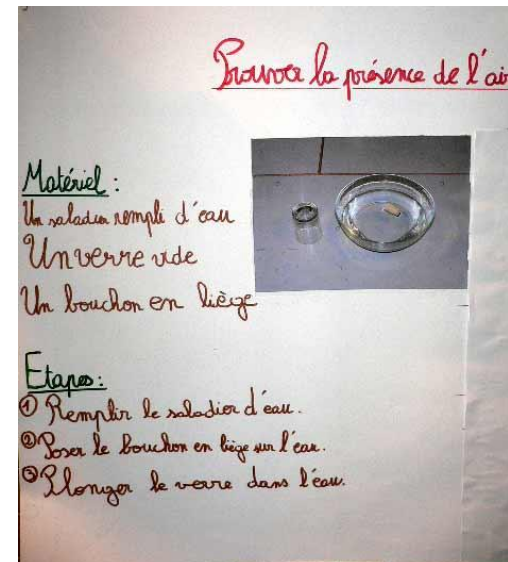 Prouver la présence de l'air
Matériel :
Un saladier rempli d'eau
Un verre vide
Un bouchon en liège
Etapes :
① Remplir le saladier d'eau.
② Poser le bouchon en liège sur l'eau.
③ Plonger le verre dans l'eau.